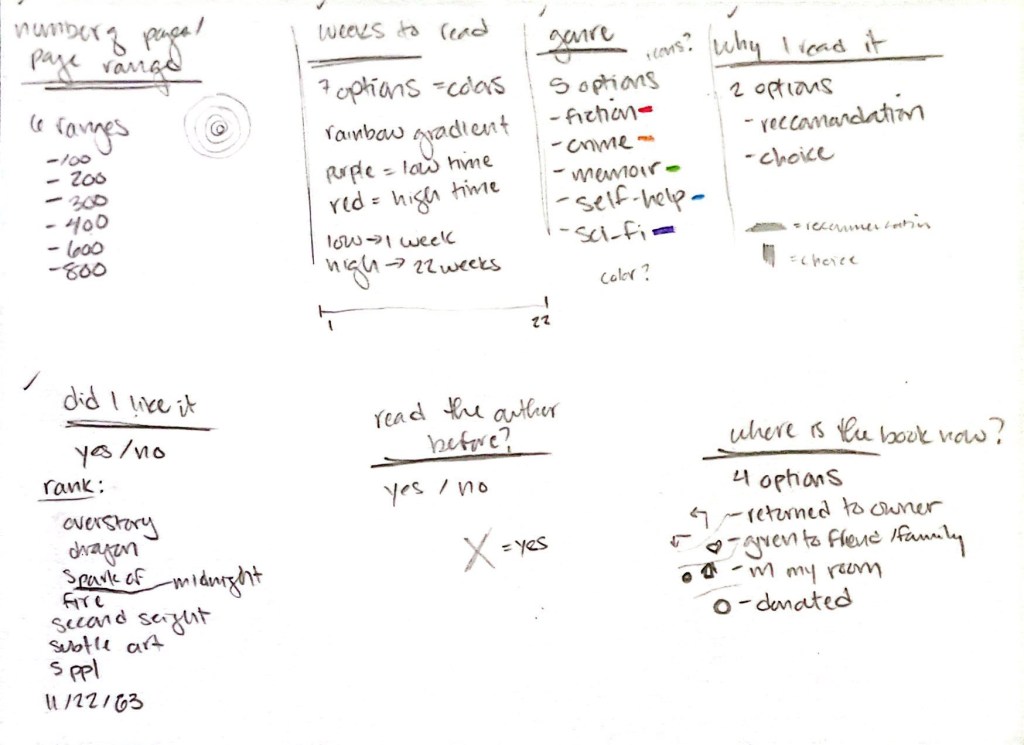 number of pages/
page range
6 ranges
-100
- 200
- 300
- 400
-600
-800
weeks to read
7 options = colors
rainbow gradient
purple = low time
red = high time
low → 1 week
high → 22 weeks
1
22
genre
icons?
5 options
- fiction
- crime
- memoir
- self-help
- sci-fi
color?
why I read it
2 options
- reccomandation
- choice
= recommendation
= choice
did I like it
yes / no
rank:
overstory
dragon
spark of
midnight
fire
second seight
subtle art
5 ppl
11/22/63
read the author
before?
yes / no
X = yes
where is the book now?
4 options
- returned to owner
- given to friend/family
- in my room
- donated